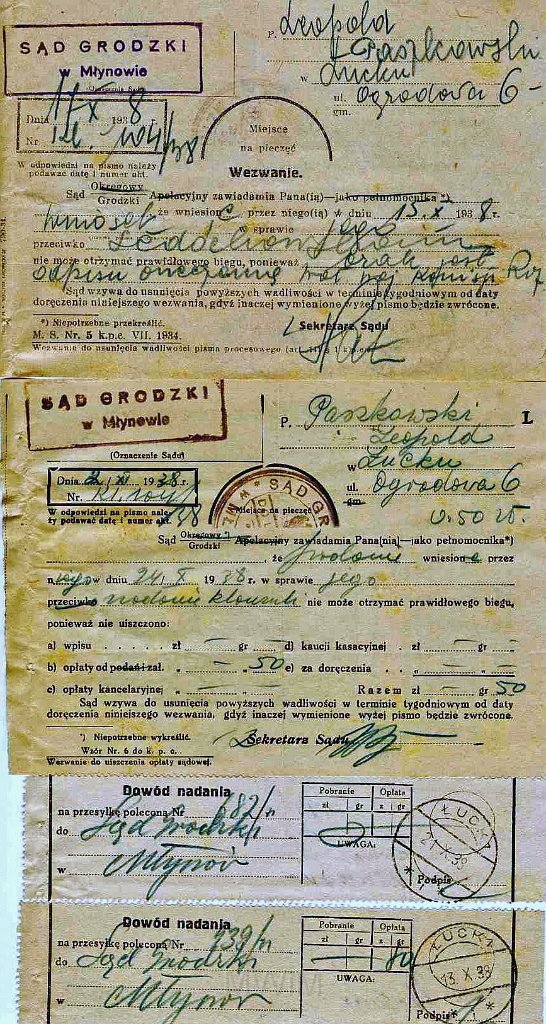 SĄD GRODZKI
w Młynowie
P. Leopold
Paszkowski
w Łucku
ul. Ogrodowa 6
gm.
Dnia 17.X 1938 r.
Nr
W odpowiedzi na pismo należy
podawać datę i numer akt.
Miejsce
na pieczęć
Wezwanie.
Sąd Okręgowy Apelacyjny zawiadamia Pana(ią)—jako pełnomocnika *)
Grodzki
wniosek że wniesion przez niego(ią) w dniu 13.X 1938 r.
w sprawie jego
przeciwko
nie może otrzymać prawidłowego biegu, ponieważ brak jest
odpisu
Sąd wzywa do usunięcia powyższych wadliwości w terminie tygodniowym od daty
doręczenia niniejszego wezwania, gdyż inaczej wymienione wyżej pismo będzie zwrócone.
*) Niepotrzebne przekreślić.
Sekretarz Sądu
M. S. Nr. 5 k.p.c. VII. 1934.
Wezwanie do usunięcia wadliwości pisma procesowego
SĄD GRODZKI
w Młynowie
(Oznaczenie Sądu)
L
P. Paszkowski
Leopold
w Łucku
ul. Ogrodowa 6
gm.
0.50
Dnia 1938 r.
Nr.
W odpowiedzi na pismo należy podawać datę i numer akt.
Miejsce na pieczęć
SĄD GR
Sąd Okręgowy *) Apelacyjny zawiadamia Pana(nią)—jako pełnomocnika*)
Grodzki
, że wniesion przez
w dniu 24.X 1938 r. w sprawie jego
przeciwko nie może otrzymać prawidłowego biegu,
ponieważ nie uiszczono:
a) wpisu . . . . . . zł — gr — d) kaucji kasacyjnej . zł — gr —
b) opłaty od podań i zał. „ — „ 50 e) za doręczenia . . „ — „ —
c) opłaty kancelaryjnej „ — „ — Razem zł — gr 50
Sąd wzywa do usunięcia powyższych wadliwości w terminie tygodniowym od daty
doręczenia niniejszego wezwania, gdyż inaczej wymienione wyżej pismo będzie zwrócone.
*) Niepotrzebne wykreślić.
Sekretarz Sądu
Wzór Nr. 6 do k. p. c.
Wezwanie do uiszczenia opłaty sądowej.
Dowód nadania
na przesyłkę poleconą Nr 682/n
do Sąd Grodzki
w Młynów
Pobranie Opłata
zł gr z gr
UWAGA:
ŁUCK 1
X 38
Podpis
Dowód nadania
na przesyłkę poleconą Nr 139/n
do Sąd Grodzki
w Młynów
Pobranie Opłata
zł gr z gr
— 80
UWAGA:
ŁUCK 1
13. X 38
Podpis